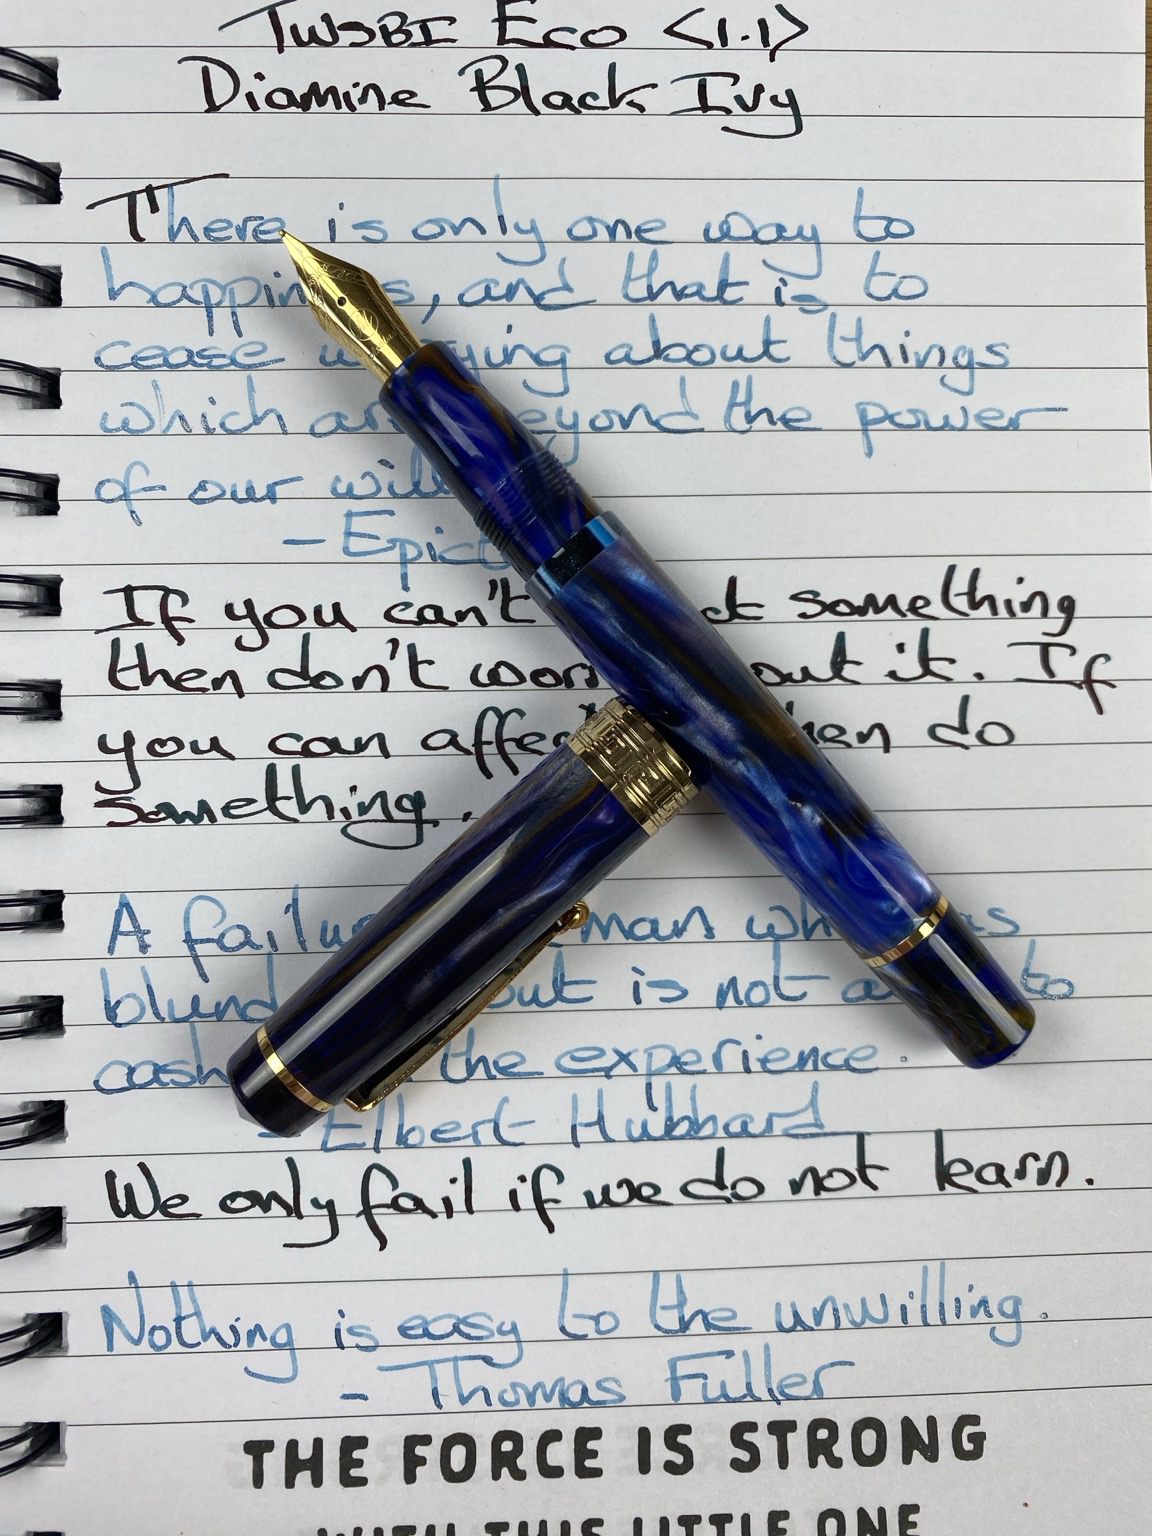 TWSBI Eco <1.1>
Diamine Black Ivy
There is only one way to
happin s, and that is to
cease w ying about things
which ar eyond the power
of our will
- Epict
If you can't ct something
then don't worr out it. If
you can affec hen do
something.
A failu man wh as
blund but is not a to
cash the experience.
- Elbert Hubbard
We only fail if we do not learn.
Nothing is easy to the unwilling.
- Thomas Fuller
THE FORCE IS STRONG
WITH THIS LITTLE ONE